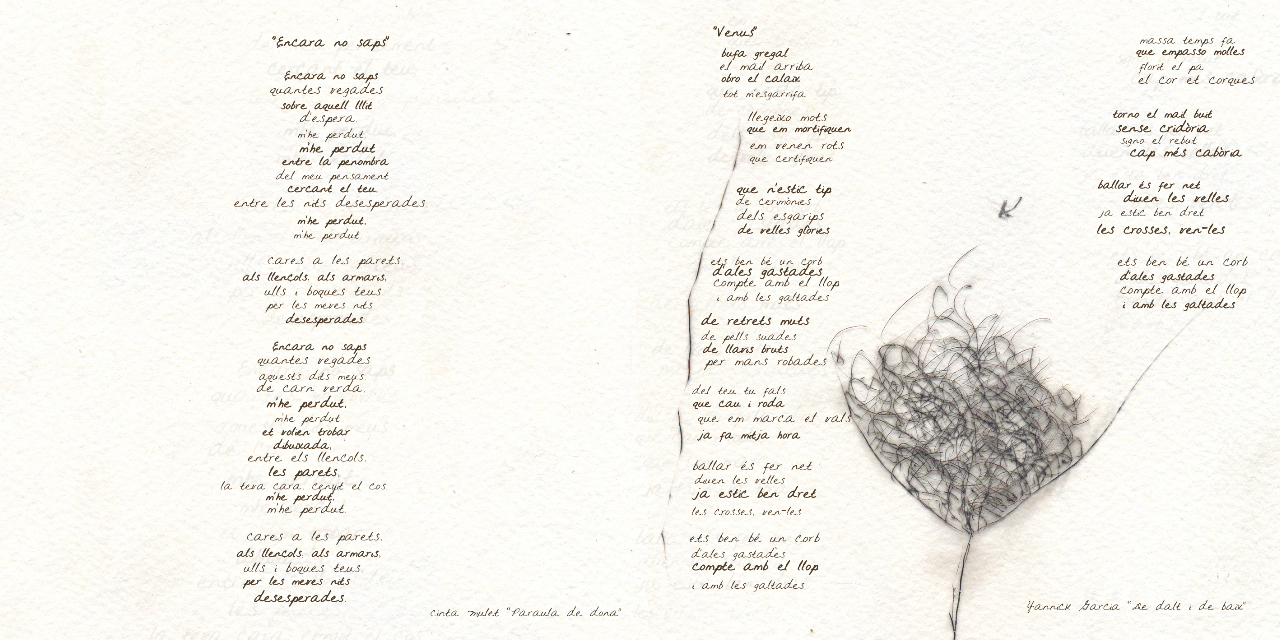 "Encara no saps"
Encara no saps
quantes vegades
sobre aquell llit
d'espera
m'he perdut.
m'he perdut
entre la penombra
del meu pensament
cercant el teu
entre les nits desesperades
m'he perdut,
m'he perdut
cares a les parets,
als llençols, als armaris,
ulls i boques teus
per les meves nits
desesperades
Encara no saps
quantes vegades
aquests dits meus
de carn verda,
m'he perdut,
m'he perdut
et volien trobar
dibuixada,
entre els llençols,
les parets,
la teva cara, cenyit el cos
m'he perdut,
m'he perdut.
cares a les parets,
als llençols, als armaris,
ulls i boques teus
per les meves nits
desesperades.
cinta mulet "Paraula de dona"
"Venus"
bufa gregal
el mail arriba
obro el calaix
tot m'esgarrifa
llegeixo mots
que em mortifiquen
em venen rots
que certifiquen
que n'estic tip
de cerimònies
dels esgarips
de velles glòries
ets ben bé un corb
d'ales gastades
compte amb el llop
i amb les galtades
de retrets muts
de pells suades
de llavis bruts
per mans robades
del teu tu fals
que cau i roda
que em marca el vals
ja fa mitja hora
ballar és fer net
diuen les velles
ja estic ben dret
les crosses, ven-les
ets ben bé un corb
d'ales gastades
compte amb el llop
i amb les galtades
massa temps fa
que empasso molles
florit el pa
el cor et corques
torno el mail buit
sense cridòria
signo el rebut
cap més cabòria
ballar és fer net
diuen les velles
ja estic ben dret
les crosses, ven-les
ets ben bé un corb
d'ales gastades
compte amb el llop
i amb les galtades
Yannick Garcia "De dalt i de baix"